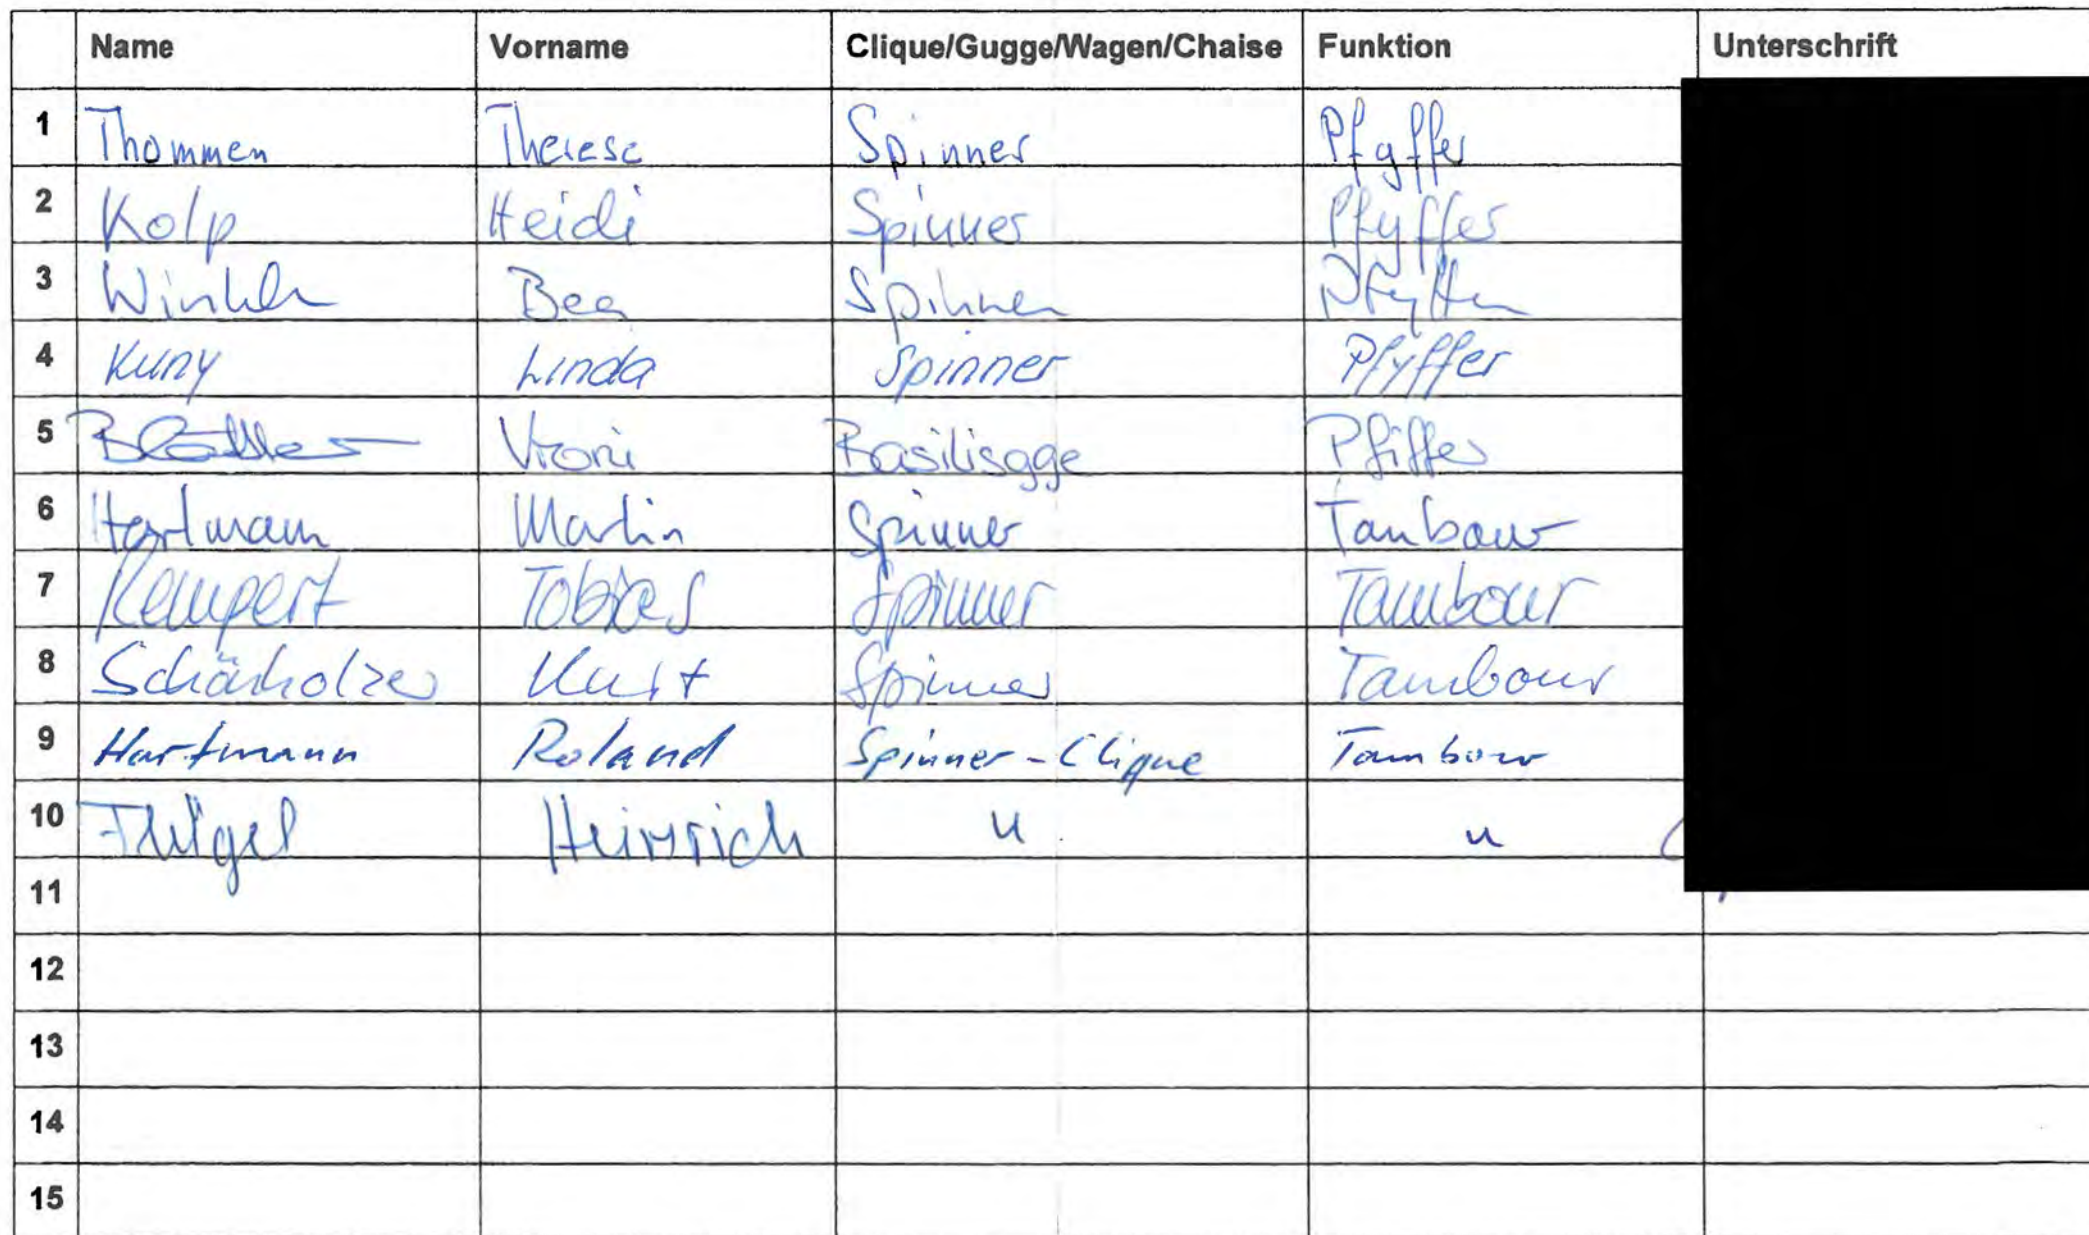 Name Vorname Clique/Gugge/Wagen/Chaise Funktion Unterschrift
1 Thommen Therese Spinner Pfyffer
2 Kolp Heidi Spinner Pfyffer
3 Winkler Bea Spinner Pfyffer
4 Kuny Linda Spinner Pfyffer
5 Blättler Vroni Basilisgge Pfiffer
6 Hartmann Martin Spinner Tambour
7 Kempert Tobias Spinner Tambour
8 Schärholzer Kurt Spinner Tambour
9 Hartmann Roland Spinner-Clique Tambour
10 Flügel Heinrich " "
11
12
13
14
15